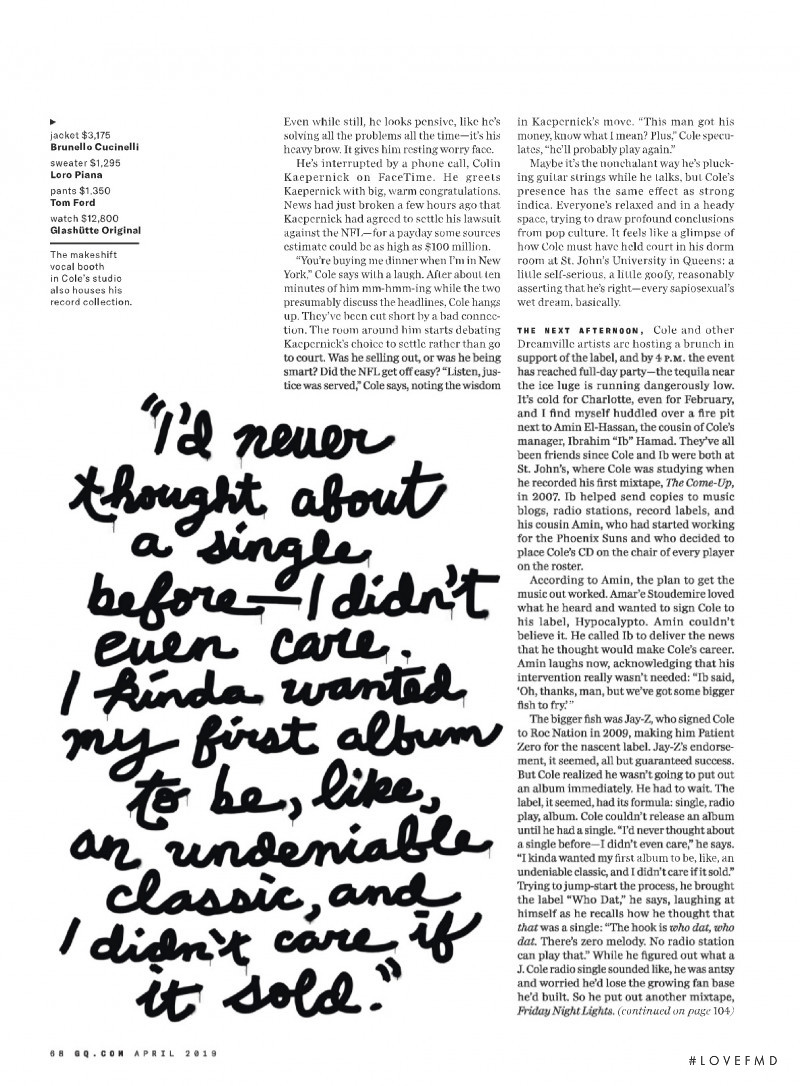 ▶
jacket $3,175
Brunello Cucinelli
sweater $1,295
Loro Piana
pants $1,350
Tom Ford
watch $12,800
Glashütte Original
The makeshift
vocal booth
in Cole's studio
also houses his
record collection.
Even while still, he looks pensive, like he's
solving all the problems all the time—it's his
heavy brow. It gives him resting worry face.
He's interrupted by a phone call, Colin
Kaepernick on FaceTime. He greets
Kaepernick with big, warm congratulations.
News had just broken a few hours ago that
Kaepernick had agreed to settle his lawsuit
against the NFL—for a payday some sources
estimate could be as high as $100 million.
"You're buying me dinner when I'm in New
York," Cole says with a laugh. After about ten
minutes of him mm-hmm-ing while the two
presumably discuss the headlines, Cole hangs
up. They've been cut short by a bad connec-
tion. The room around him starts debating
Kaepernick's choice to settle rather than go
to court. Was he selling out, or was he being
smart? Did the NFL get off easy? "Listen, jus-
tice was served," Cole says, noting the wisdom
"I'd never
thought about
a single
before—I didn't
even care.
I kinda wanted
my first album
to be, like,
an undeniable
classic, and
I didn't care if
it sold."
in Kaepernick's move. "This man got his
money, know what I mean? Plus," Cole specu-
lates, "he'll probably play again."
Maybe it's the nonchalant way he's pluck-
ing guitar strings while he talks, but Cole's
presence has the same effect as strong
indica. Everyone's relaxed and in a heady
space, trying to draw profound conclusions
from pop culture. It feels like a glimpse of
how Cole must have held court in his dorm
room at St. John's University in Queens: a
little self-serious, a little goofy, reasonably
asserting that he's right—every sapiosexual's
wet dream, basically.
THE NEXT AFTERNOON, Cole and other
Dreamville artists are hosting a brunch in
support of the label, and by 4 P.M. the event
has reached full-day party—the tequila near
the ice luge is running dangerously low.
It's cold for Charlotte, even for February,
and I find myself huddled over a fire pit
next to Amin El-Hassan, the cousin of Cole's
manager, Ibrahim "Ib" Hamad. They've all
been friends since Cole and Ib were both at
St. John's, where Cole was studying when
he recorded his first mixtape, The Come-Up,
in 2007. Ib helped send copies to music
blogs, radio stations, record labels, and
his cousin Amin, who had started working
for the Phoenix Suns and who decided to
place Cole's CD on the chair of every player
on the roster.
According to Amin, the plan to get the
music out worked. Amar'e Stoudemire loved
what he heard and wanted to sign Cole to
his label, Hypocalypto. Amin couldn't
believe it. He called Ib to deliver the news
that he thought would make Cole's career.
Amin laughs now, acknowledging that his
intervention really wasn't needed: "Ib said,
'Oh, thanks, man, but we've got some bigger
fish to fry.'"
The bigger fish was Jay-Z, who signed Cole
to Roc Nation in 2009, making him Patient
Zero for the nascent label. Jay-Z's endorse-
ment, it seemed, all but guaranteed success.
But Cole realized he wasn't going to put out
an album immediately. He had to wait. The
label, it seemed, had its formula: single, radio
play, album. Cole couldn't release an album
until he had a single. "I'd never thought about
a single before—I didn't even care," he says.
"I kinda wanted my first album to be, like, an
undeniable classic, and I didn't care if it sold."
Trying to jump-start the process, he brought
the label "Who Dat," he says, laughing at
himself as he recalls how he thought that
that was a single: "The hook is who dat, who
dat. There's zero melody. No radio station
can play that." While he figured out what a
J. Cole radio single sounded like, he was antsy
and worried he'd lose the growing fan base
he'd built. So he put out another mixtape,
Friday Night Lights. (continued on page 104)
68 GQ.COM APRIL 2019
#LOVEFMD